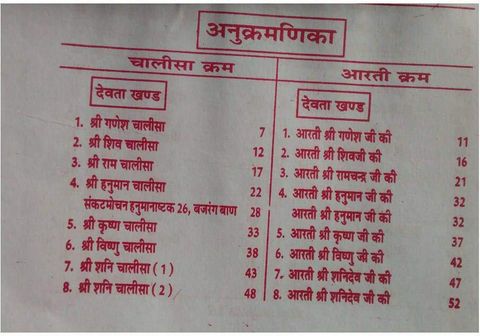 अनुक्रमणिका
चालीसा क्रम
देवता खण्ड
1. श्री गणेश चालीसा 7
2. श्री शिव चालीसा 12
3. श्री राम चालीसा 17
4. श्री हनुमान चालीसा 22
संकटमोचन हनुमानाष्टक 26, बजरंग बाण 28
5. श्री कृष्ण चालीसा 33
6. श्री विष्णु चालीसा 38
7. श्री शनि चालीसा ( 1 ) 43
8. श्री शनि चालीसा ( 2 ) 48
आरती क्रम
देवता खण्ड
1. आरती श्री गणेश जी की 11
2. आरती श्री शिवजी की 16
3. आरती श्री रामचन्द्र जी की 21
4. आरती श्री हनुमान जी की 32
आरती श्री हनुमान जी की 32
5. आरती श्री कृष्ण जी की 37
6. आरती श्री विष्णु जी की 42
7. आरती श्री शनिदेव जी की 47
8. आरती श्री शनिदेव जी की 52